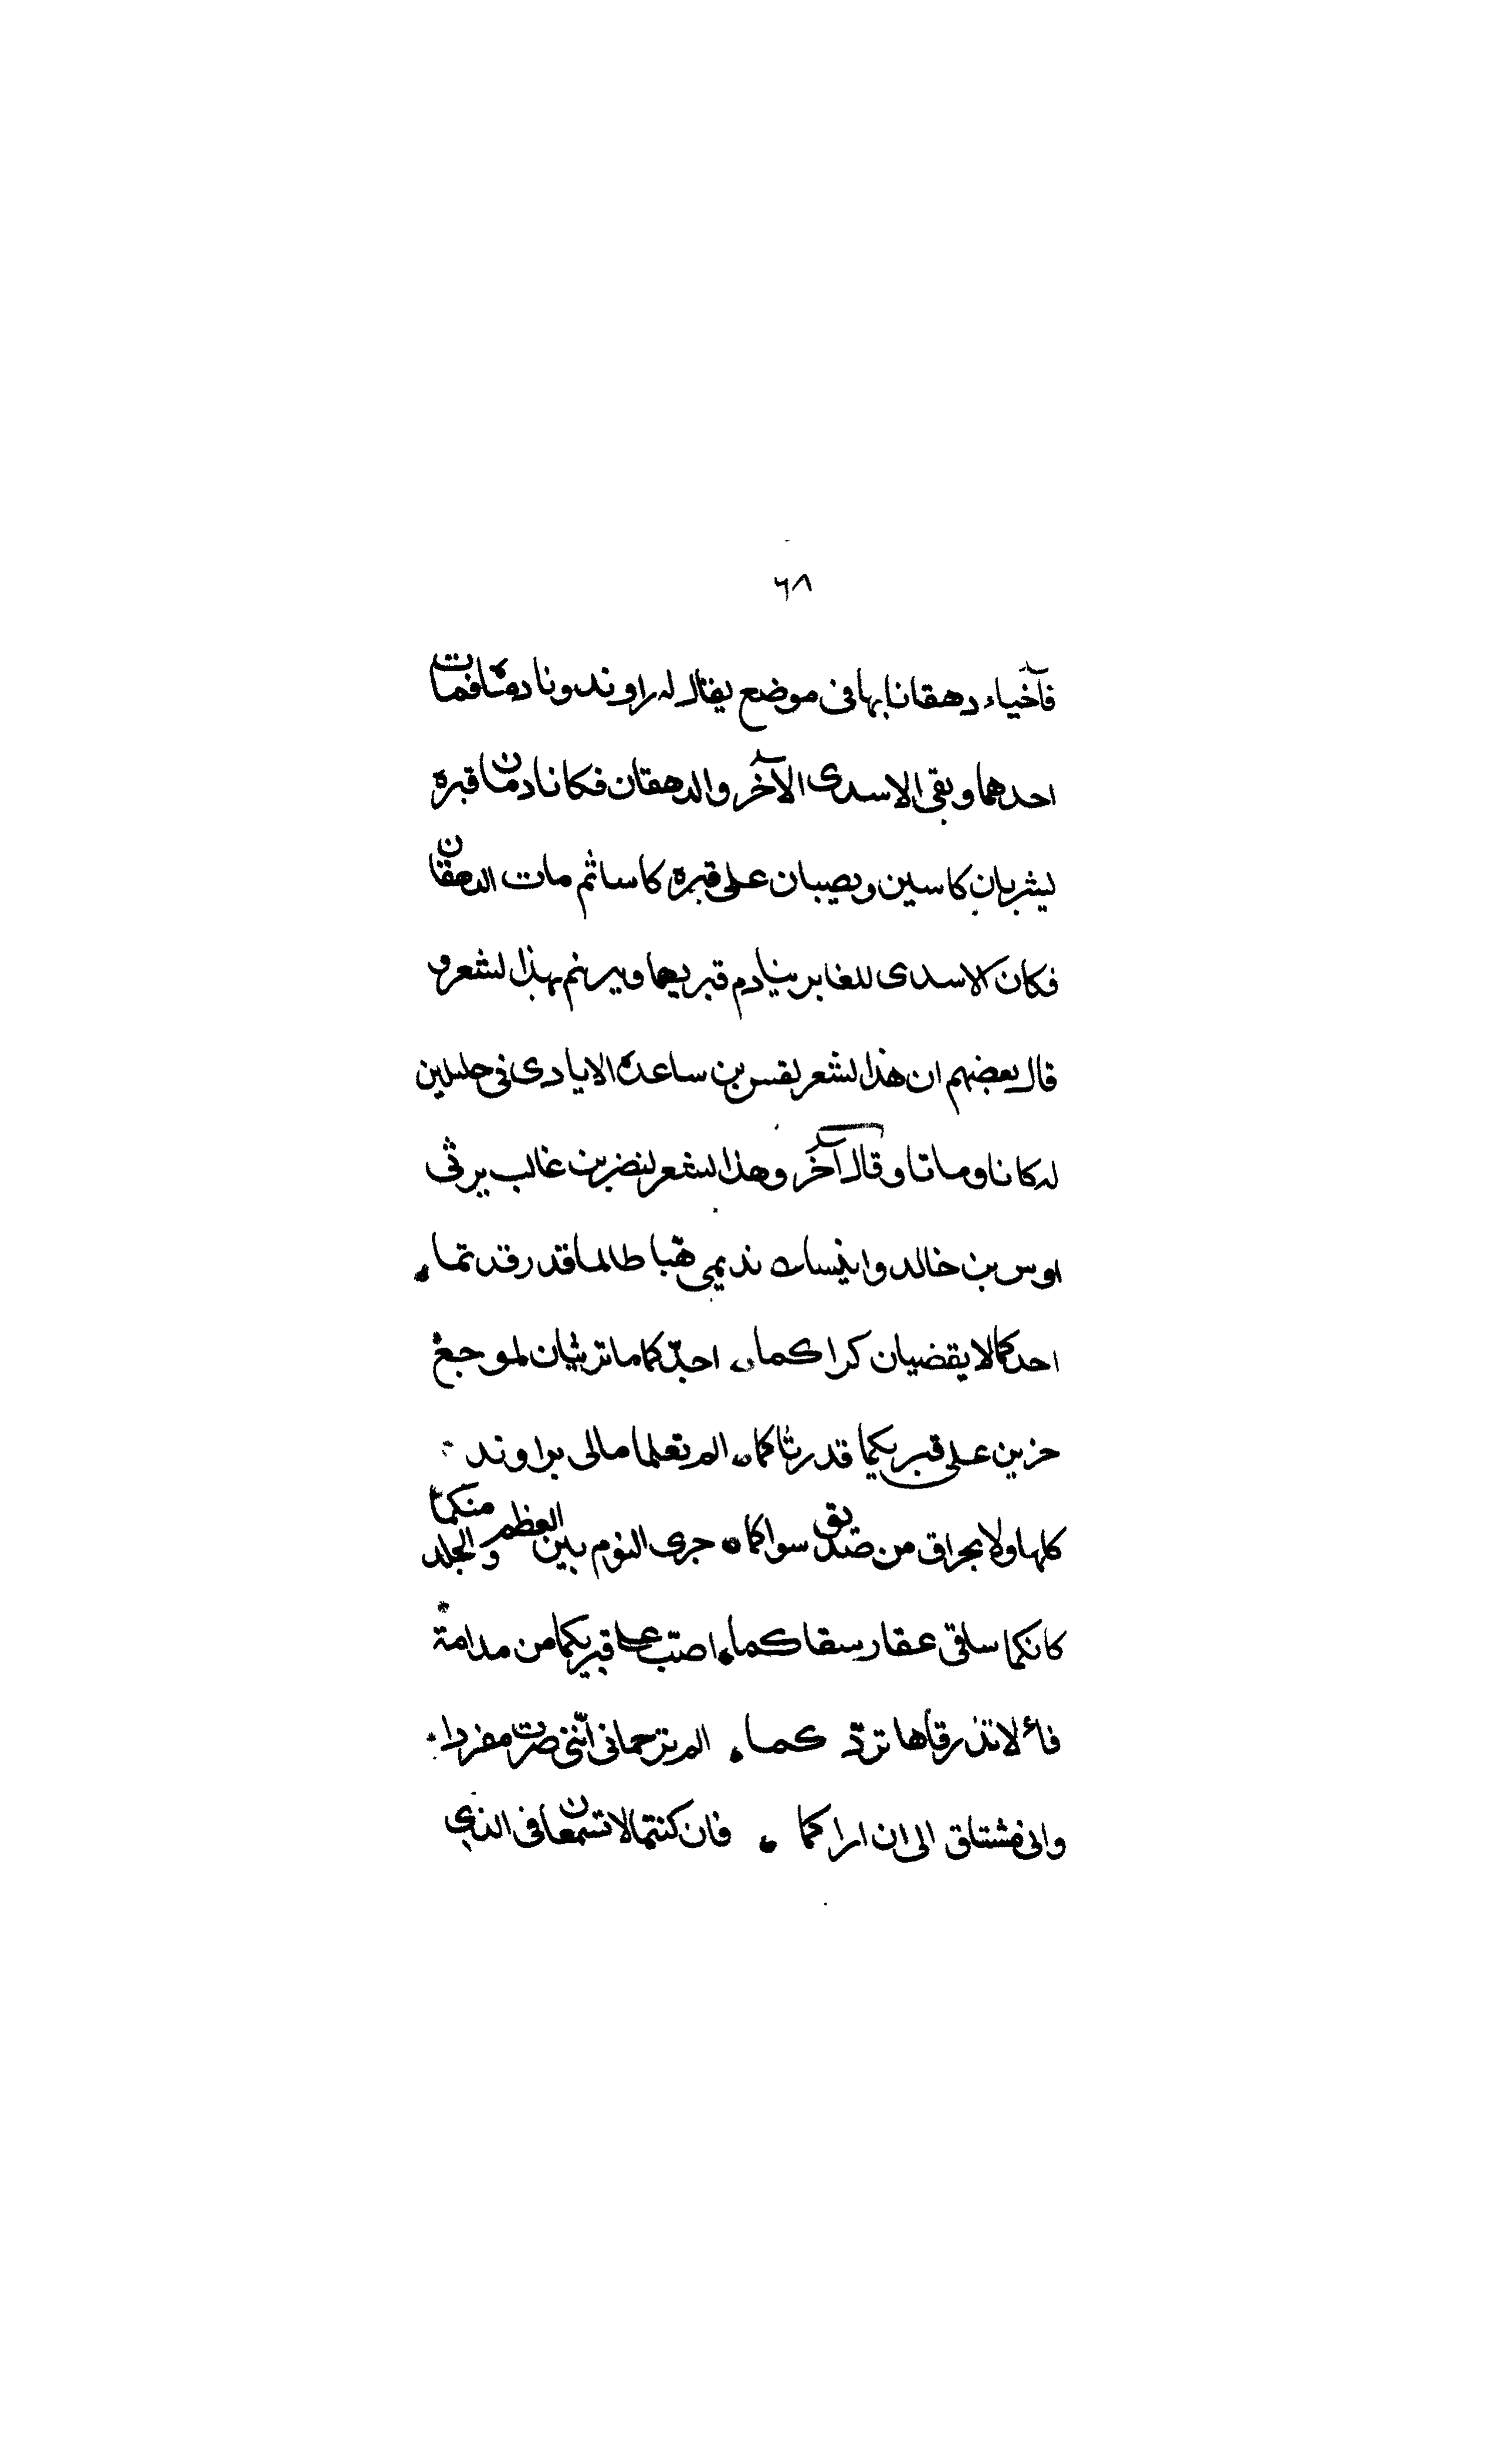 ٦٨
فآخياء دهقانا بها فى موضع يقال له راوند ونادمٰاه فمات
احدهما وبقى الاسدى الآخر والدهقان فكانا دمان قبره
يشربان كاسين ويصيبان على قبره كاسا ثم مات الدهقان
فكان الاسدى للغابر ينادم قبريهما ويرنم بهذا لشعر و
قال بعضهم ان هذا لشعر لقس بن ساعدة الايادى فى خليلين
له كانا وماتا وقال آخر وهذا لشعر لنضر بن غالب يرثى
اوس بن خالد وانيسات نديمى هبا طالما قد رقدتما ۰
احدكما لا يقضيان كراكما ۰ احبدّكما ما ترثيان لموجع
حزين على قبريكما قد رثاكما ۰ الم تعلما مالى براوند
كلها ولا بحراق من صديق سواكما ۰ جرى النوم بين العظم والجلد منكما
كانكما ساقى عقار سقاكما ۰ اصبّ على قبريكما من مدامة
فاء لا تذرقاها تروّ كما ۰ الم ترحمانى اننى صرت مفردا
وانى مشتاق الى ان اراكما ۰ فان كنتما لا تسمعان فى الذى